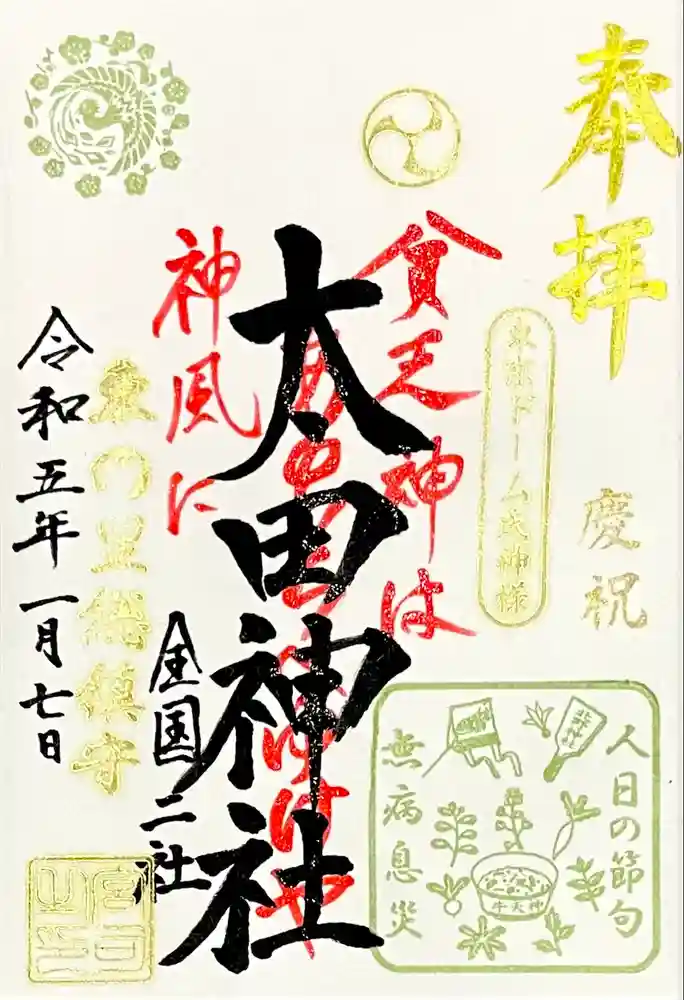 奉拝
慶祝
東京ドーム氏神様
人日の節句
無病息災
北野神社
牛天神
貧乏神は
神風に
太田神社
全国二社
令和五年一月七日
宮司之印